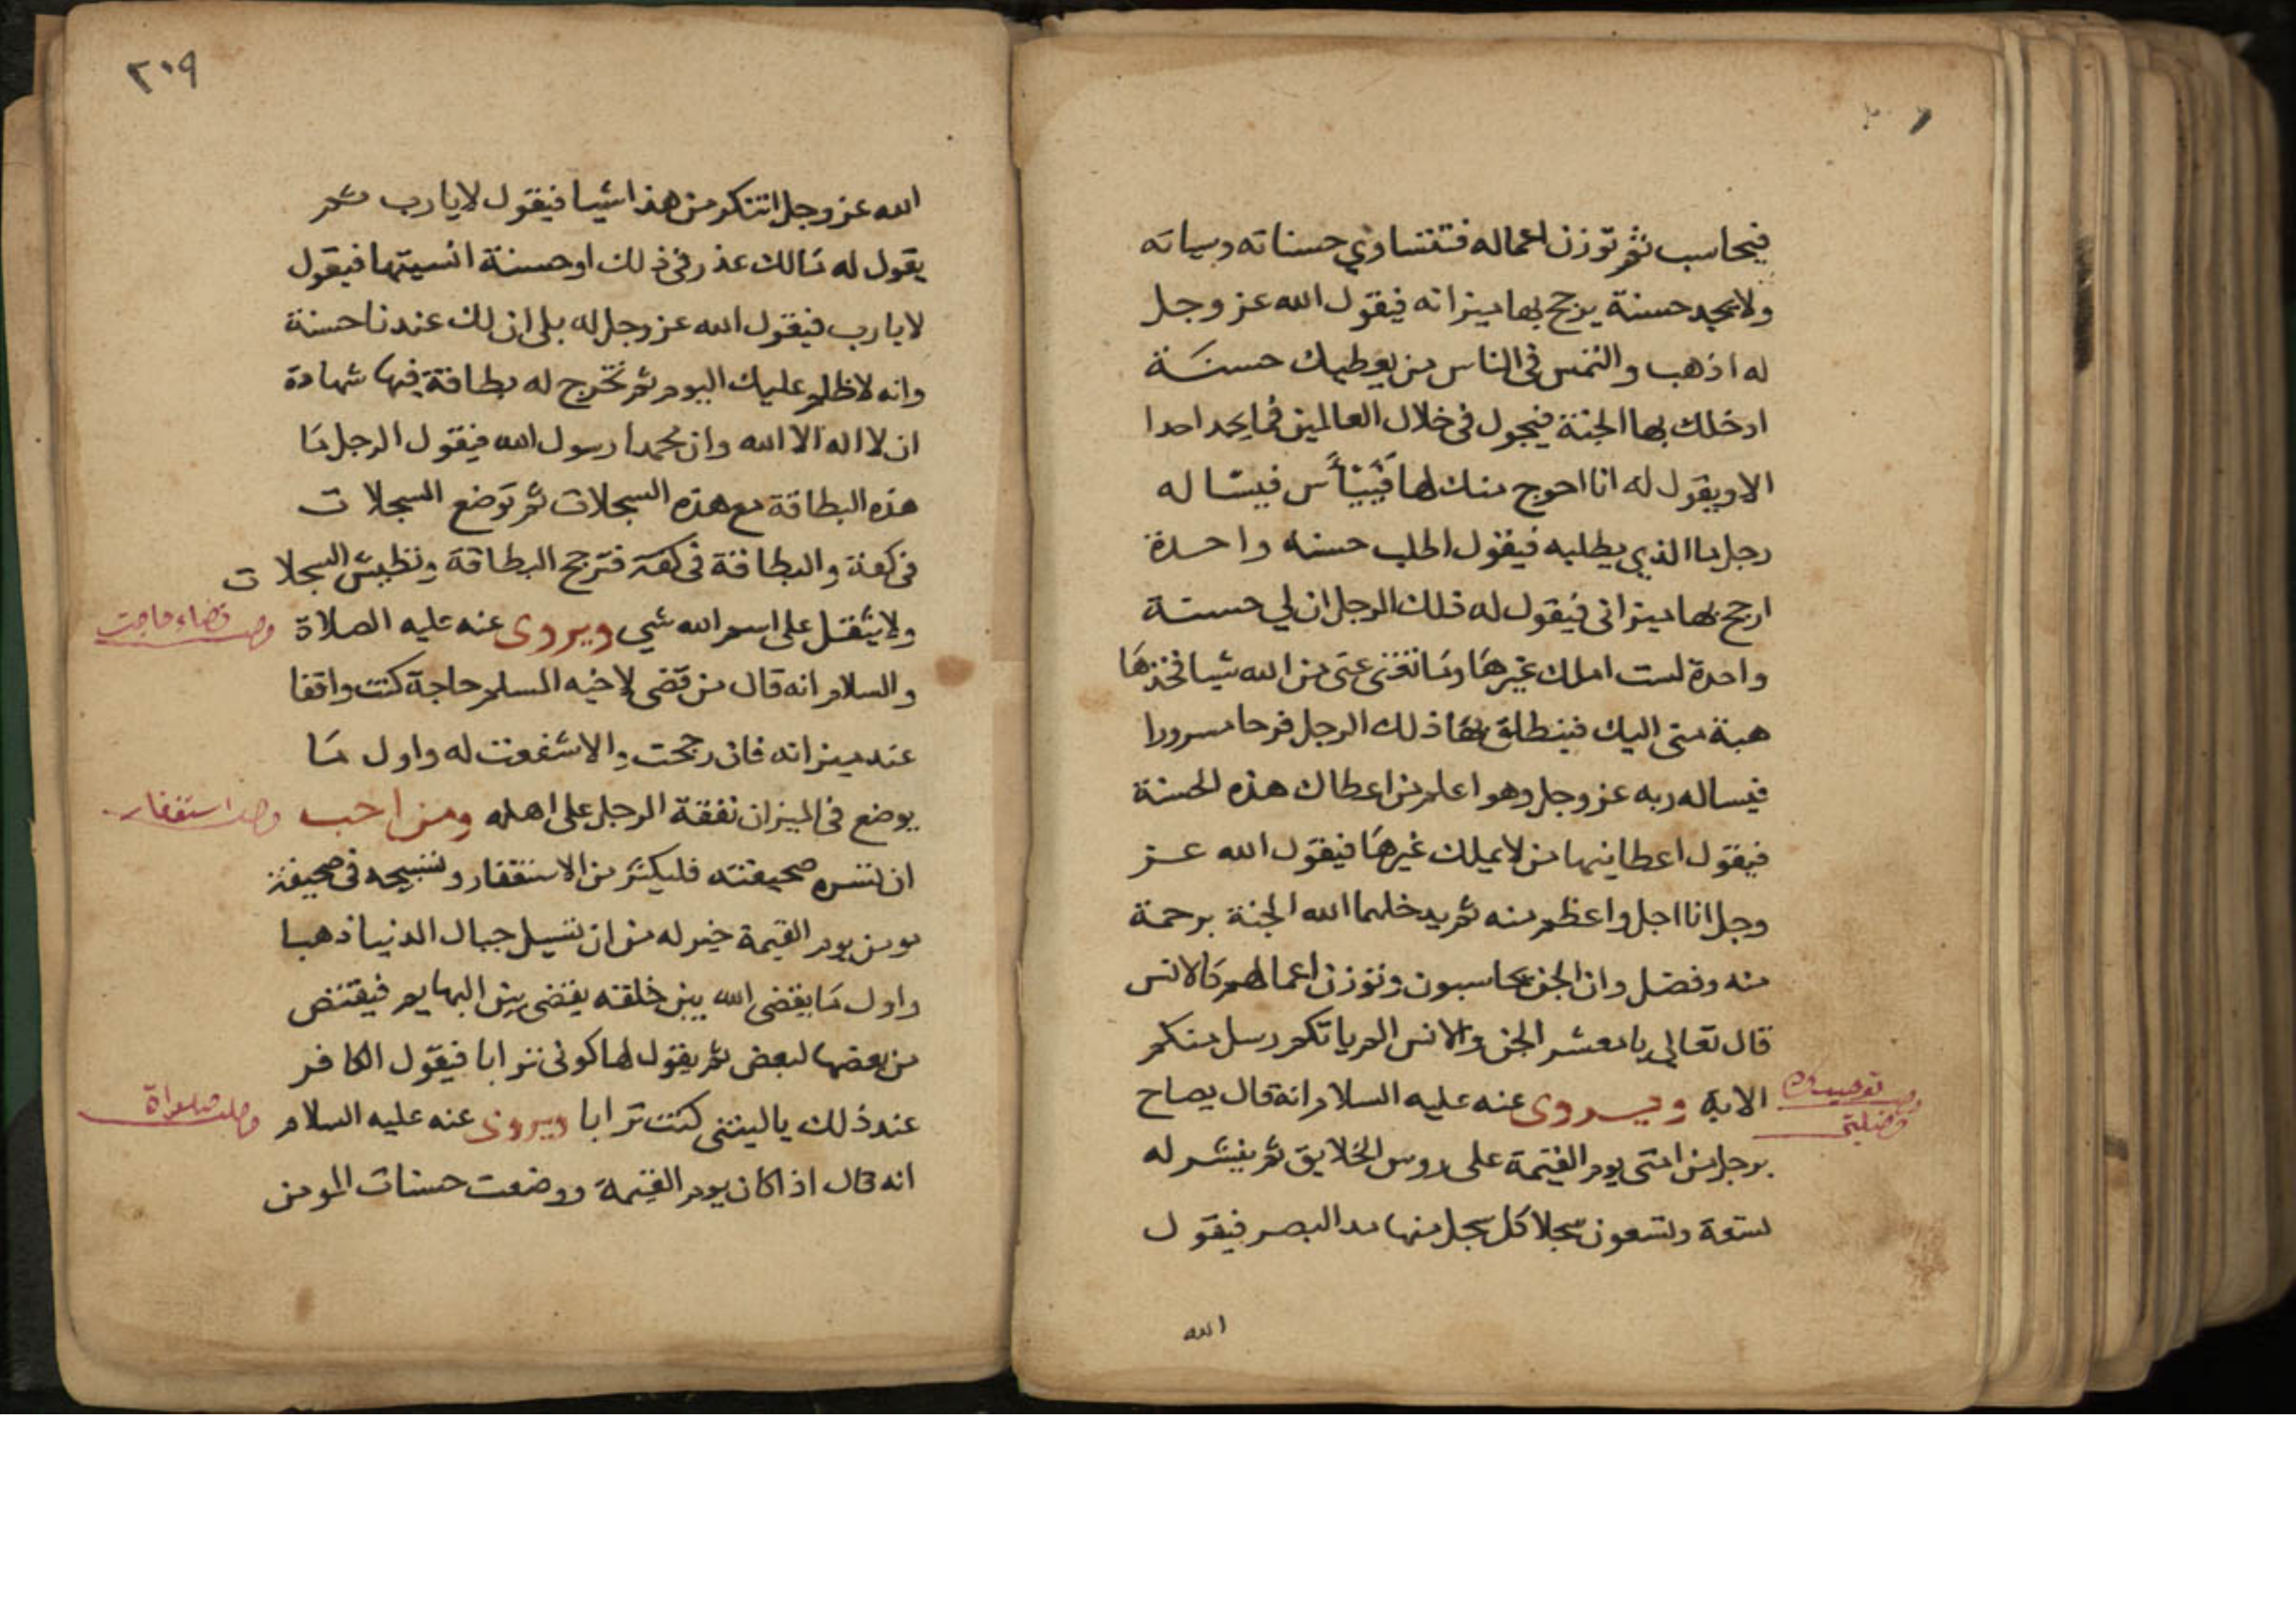 فيحاسب ثم توزن اعماله فتتساوي حسناته وسياته
ولا يجد حسنة يرجح بها ميزانه فيقول الله عز وجل
له اذهب والتمس في الناس من يعطيك حسنة
ادخلك بها الجنة فيجول في خلال العالمين فما يجد احدا
الا ويقول له انا احوج منك لها فييأس فيساله
رجل ما الذي يطلبه فيقول اطلب حسنه واحدة
ارجح بها ميزاني فيقول له ذلك الرجل ان لي حسنة
واحدة لست املك غيرها وما تغنى عنى من الله شيا فخذها
هبة منى اليك فينطلق بها ذلك الرجل فرحا مسرورا
فيساله ربه عز وجل وهو اعلم من اعطاك هذه الحسنة
فيقول اعطانيها من لا يملك غيرها فيقول الله عز
وجل انا اجل واعظم منه ثم يدخلهما الله الجنة برحمة
منه وفضل وان الجن يحاسبون وتوزن اعمالهم كالانس
قال تعالى يا معشر الجن والانس الم ياتكم رسل منكم
الاية ويروى عنه عليه السلام انه قال يصاح
برجل من امتى يوم القيمة على روس الخلايق ثم ينشر له
تسعة وتسعون سجلا كل سجل منها مد البصر فيقول
الله
٢٠٩
الله عز وجل اتنكر من هذا شيا فيقول لا يا رب ثم
يقول له مالك عذر في ذلك او حسنة انسيتها فيقول
لا يا رب فيقول الله عز وجل له بلى ان لك عندنا حسنة
وانه لا ظلم عليك اليوم ثم تخرج له بطاقة فيها شهادة
ان لا اله الا الله وان محمدا رسول الله فيقول الرجل ما
هذه البطاقة مع هذه السجلات ثم توضع السجلات
فى كفة والبطاقة فى كفة فترجح البطاقة وتطيش السجلات
ولا يثقل على اسم الله شي ويروى عنه عليه الصلاة
قضاء حاجت
والسلام انه قال من قضى لاخيه المسلم حاجة كنت واقفا
عند ميزانه فان رجحت والا شفعت له واول ما
يوضع في الميزان نفقة الرجل على اهله ومن احب
استغفار
ان تسره صحيفته فليكثر من الاستغفار وتسبيحه فى صحيفة
مومن يوم القيمة خير له من ان تسيل جبال الدنيا ذهبا
واول ما يقضى الله بين خلقه يقضى بين البهايم فيقتص
من بعضها لبعض ثم يقول لها كونى ترابا فيقول الكافر
عند ذلك يا ليتنى كنت ترابا ويروى عنه عليه السلام
انه قال اذا كان يوم القيمة ووضعت حسنات المومن